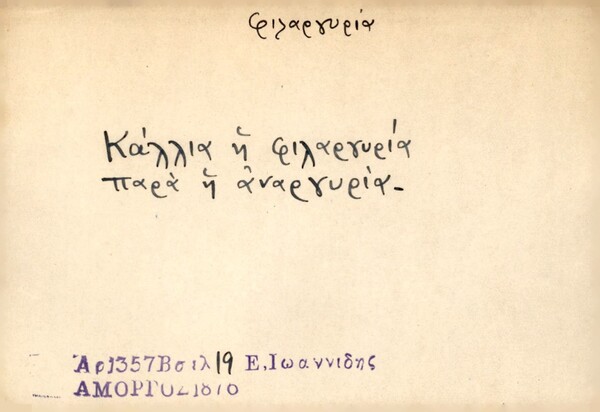 φιλαργυρία
Κάλλια ἥ φιλαργυρία
παρὰ ἥ ἀναργυρία.-
Ἀρ1357Βσελ19 Ε,Ιωαννιδης
ΑΜΟΡΓΟΣ1876